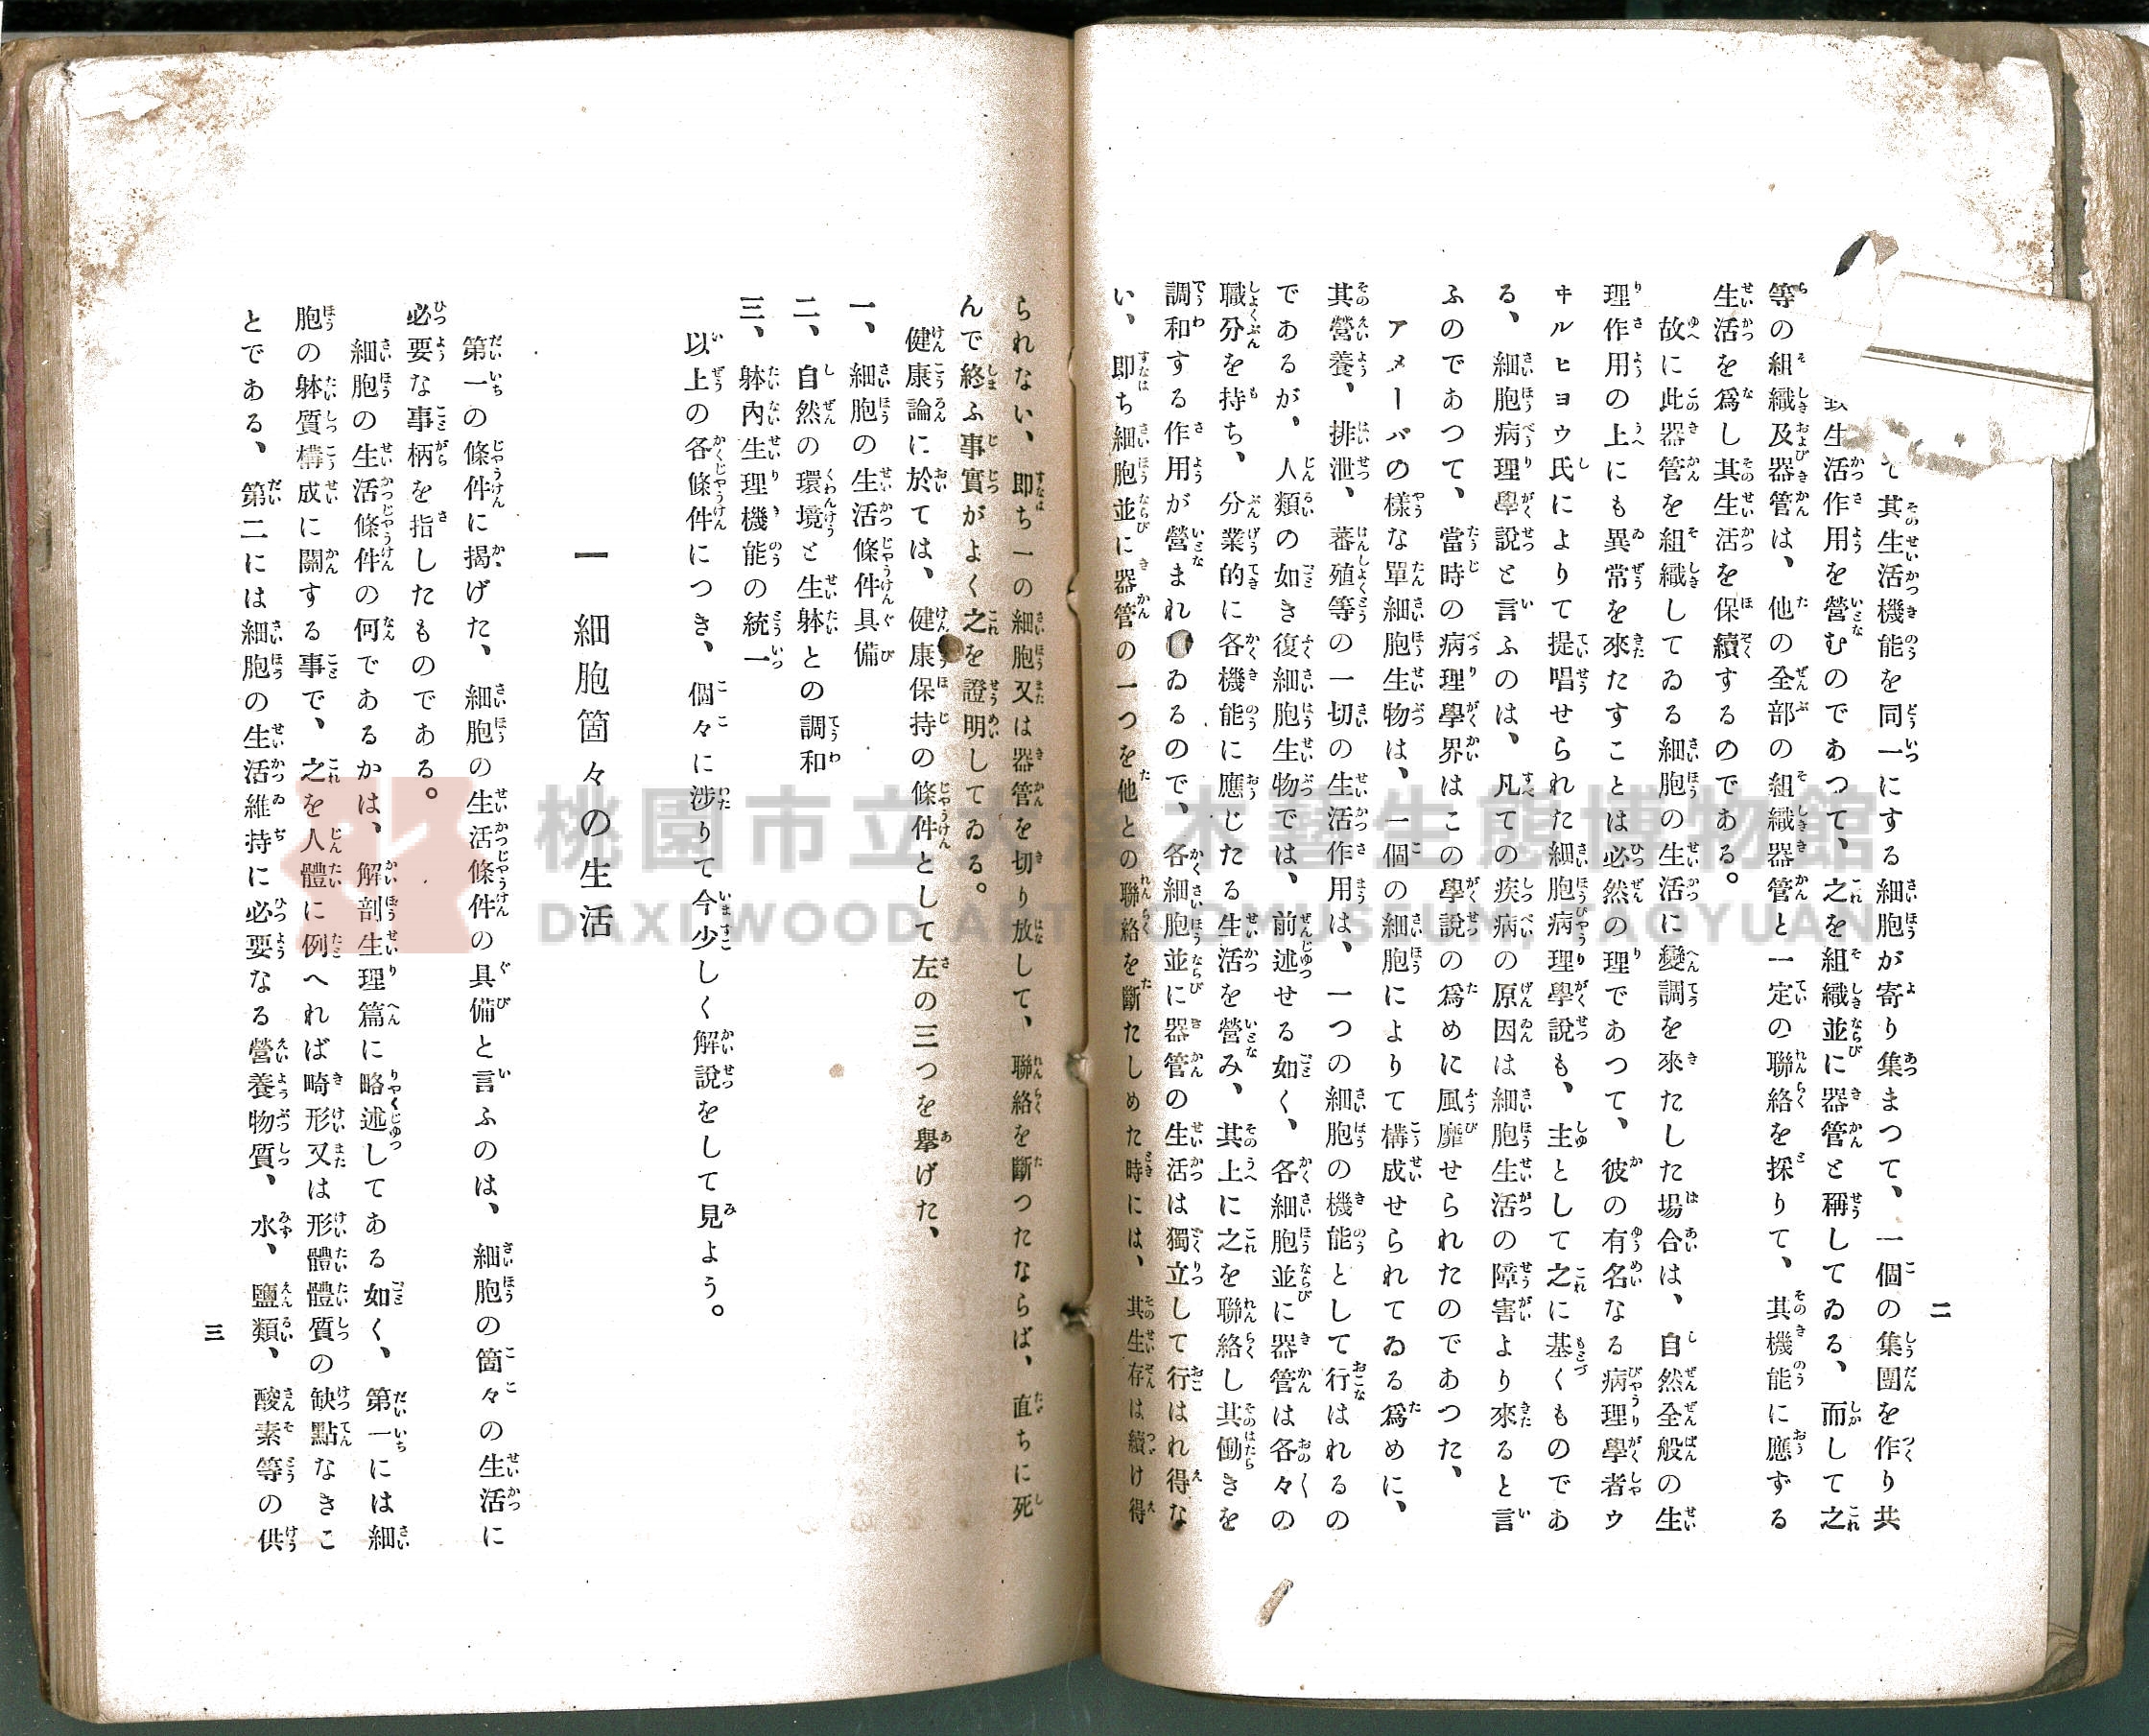 て其生活機能を同一にする細胞が寄り集まつて、一個の集團を作り共
生活作用を營むのであつて、之を組織並に器管と稱してゐる、而して之
等の組織及器管は、他の全部の組織器管と一定の聯絡を採りて、其機能に應する
生活を爲し其生活を保續するのである。
故に此器管を組織してゐる細胞の生活に變調を來たした場合は、自然全般の生
理作用の上にも異常を來たすことは必然の理であつて、彼の有名なる病理學者ウ
ヰルヒョウ氏によりて提唱せられた細胞病理學說も、主として之に基くものであ
る、細胞病理學說と言ふのは、凡ての疾病の原因は細胞生活の障害より來ると言
ふのであつて、當時の病理學界はこの學說の爲めに風靡せられたのであつた、
アメーバの樣な單細胞生物は、一個の細胞によりて構成せられてゐる爲めに、
其營養、排泄、蕃殖等の一切の生活作用は、一つの細胞の機能として行はれるの
であるが、人類の如き復細胞生物では、前述せる如く、各細胞並に器管は各々の
職分を持ち、分業的に各機能に應じたる生活を營み、其上に之を聯絡し其働きを
調和する作用が營まれゐるので、各細胞並に器管の生活は獨立して行はれ得な
い、即ち細胞並に器管の一つを他との聯絡を斷たしめた時には、其生存は續け得
二
られない、即ち一の細胞又は器管を切り放して、聯絡を斷つたならば、直ちに死
んで終ふ事實がよく之を證明してゐる。
健康論に於ては、健康保持の條件として左の三つを擧げた、
一、細胞の生活條件具備
二、自然の環境と生躰との調和
三、躰內生理機能の統一
以上の各條件につき、個々に涉りて今少しく解說をして見よう。
一 細胞箇々の生活
第一の條件に揭げた、細胞の生活條件の具備と言ふのは、細胞の箇々の生活に
必要な事柄を指したものである。
細胞の生活條件の何であるかは、解剖生理篇に略述してある如く、第一には細
胞の躰質構成に關する事で、之を人體に例へれば畸形又は形體體質の缺點なきこ
とである、第二には細胞の生活維持に必要なる營養物質、水、鹽類、酸素等の供
三
桃園市立大溪木藝生態博物館
DAXI WOOD ART ECOMUSEUM, TAOYUAN